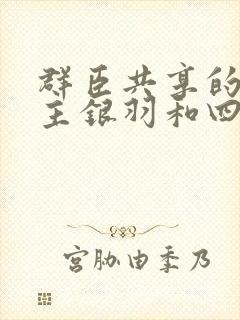 群臣共享的
主银羽和四
宫胁由季乃